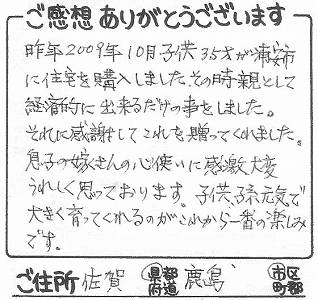 ご感想ありがとうございます
昨年2009年10月子供35才が浦安市
に住宅を購入しました。その時親として
経済的に出来るだけの事をしました。
それに感謝してこれを贈ってくれました。
息子の嫁さんの心使いに感激大変
うれしく思っております。子供、子孫元気で
大きく育ってくれるのがこれから一番の楽しみ
です。
ご住所 佐賀 県都府道 鹿島 市区町郡